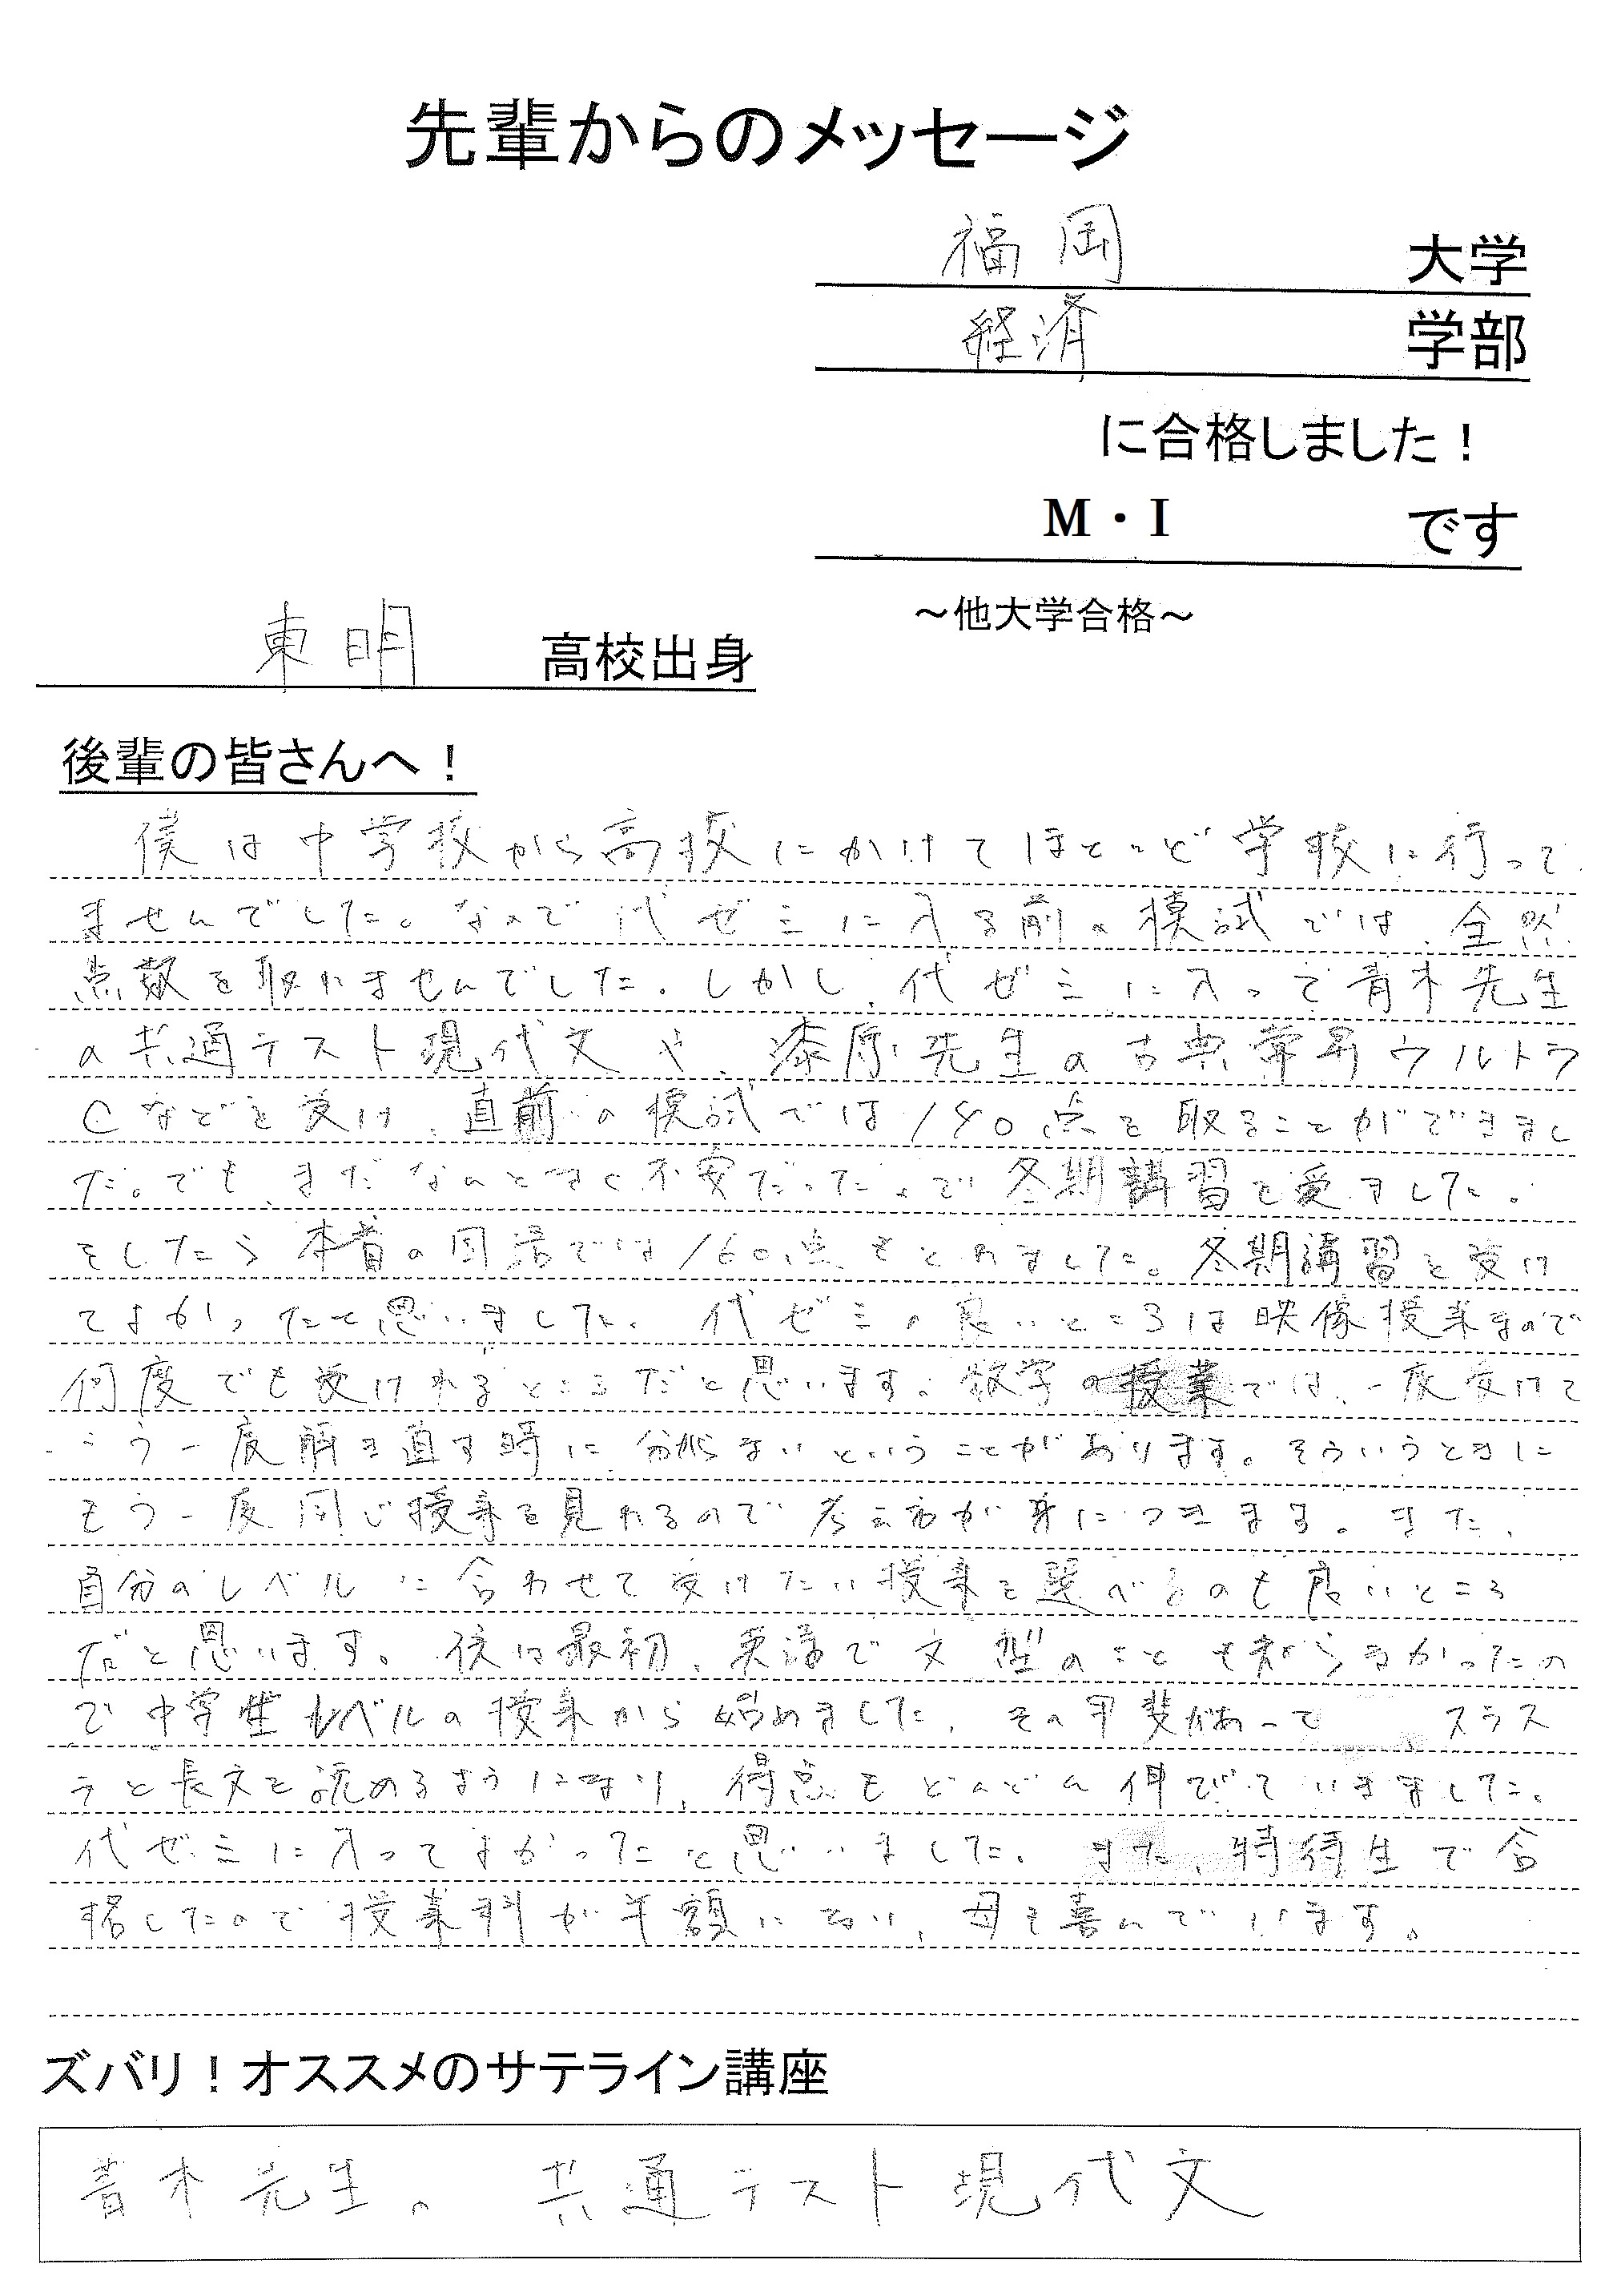 先輩からのメッセージ
福岡 大学
経済 学部
に合格しました！
M・I です
～他大学合格～
東明 高校出身
後輩の皆さんへ！
僕は中学校から高校にかけてほとんど学校に行って
ませんでした。なので代ゼミに入る前の模試では、全然
点数を取れませんでした。しかし、代ゼミに入って青木先生
の共通テスト現代文や、漆原先生の古典常昇ウルトラ
Cなどを受け、直前の模試では140点を取ることができまし
た。でも、まだなんとなく不安だったので冬期講習を受ました。
そしたら本番の国語では160点もとれました。冬期講習を受け
てよかったと思いました。代ゼミの良いところは映像授業なので
何度でも受けれるところだと思います。数学の授業では、一度受けて
もう一度解き直す時に分からないということがあります。そういうときに
もう一度同じ授業を見れるので考え方が身につきます。また、
自分のレベルに合わせて受けたい授業を選べるのも良いところ
だと思います。僕は最初、英語で文型のことも知らなかったの
で中学生レベルの授業から始めました。その甲斐があって スラス
ラと長文を読めるようになり、得点もどんどん伸びていきました。
代ゼミに入ってよかったと思いました。また、特待生で合
格したので授業料が半額になり、母も喜んでいます。
ズバリ！オススメのサテライン講座
青木先生の 共通テスト現代文